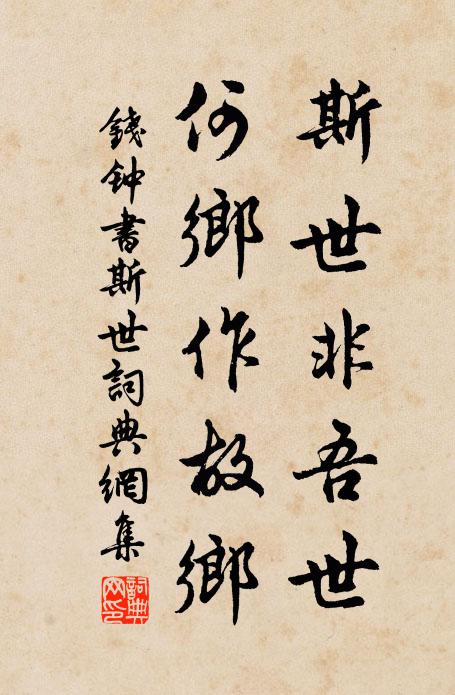 斯世非吾世
何鄉作故鄉
錢钟書斯世詞典網集
詞典網印